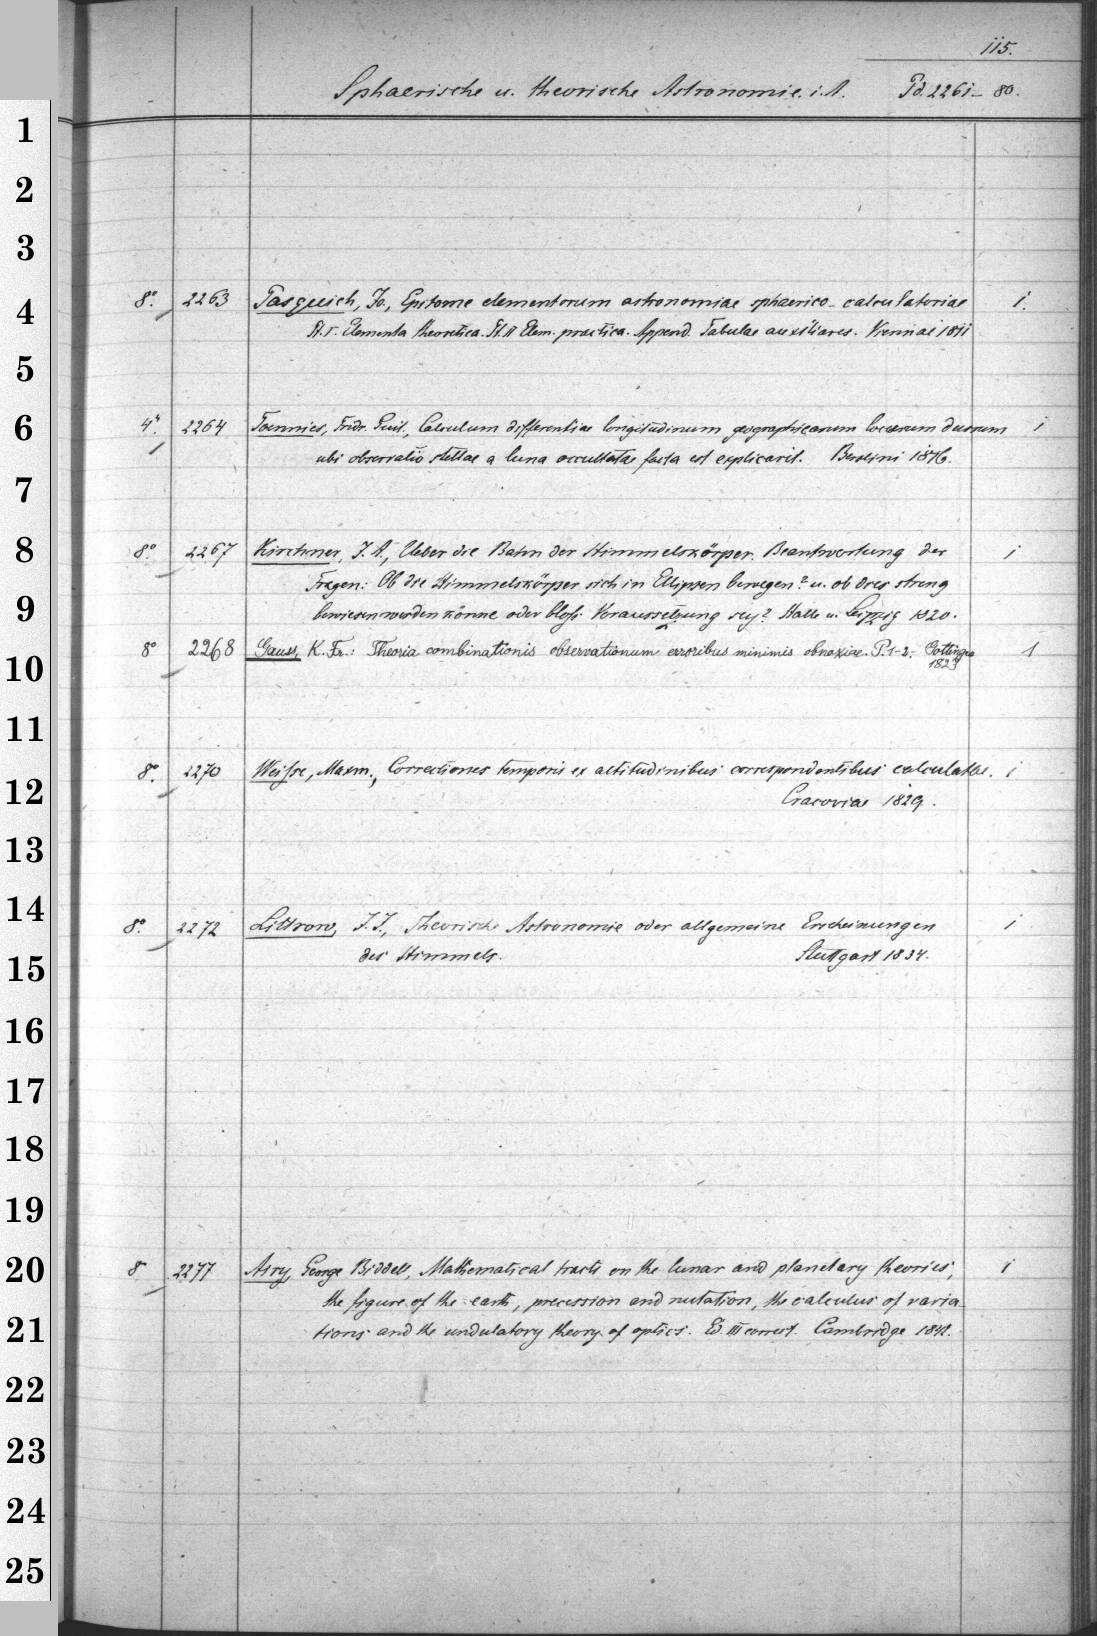 115.
Sphaerische u. theorische Astronomie. i. A. Pd. 2261-80.
1
2
3
8°. 2263 Pasquich, Jo., Epitome elementorum astronomiae sphaerico-calculatoriae 1.
4
Pt. I. Elementa theoretica. Pt. II Elem. practica. Append. Tabulae auxiliares. Viennae 1811
5
4°. 2264 Toennies, Fridr. Guil., Calculum differentiae longitudinum geographicarum locorum duorum 1
6
ubi observatio stellae a luna occultatae facta est explicavit. Berolini 1876.
7
8°. 2267 Kirchner, J. A., Ueber die Bahn der Himmelskörper. Beantwortung der 1
8
Fragen: Ob die Himmelskörper sich in Ellipsen bewegen? u. ob dies streng
9
bewiesen werden könne oder bloss Voraussetzung sey? Halle u. Leipzig 1820.
8° 2268 Gauss, K. Fr.: Theoria combinationis observationum erroribus minimis obnoxiae. P. 1-2. Gottingae 1
1823
10
11
8°. 2270 Weisse, Maxm., Correctiones temporis ex altitudinibus correspondentibus calculatae. 1
12
Cracoviae 1829.
13
14
8°. 2272 Littrow, J. J., Theorische Astronomie oder allgemeine Erscheinungen 1
des Himmels. Stuttgart 1834.
15
16
17
18
19
20
8° 2277 Airy, George Biddell, Mathematical tracts on the lunar and planetary theories, 1
the figure of the earth, precession and nutation, the calculus of varia-
21
tions and the undulatory theory of optics. Ed. III correct. Cambridge 1842.
22
23
24
25